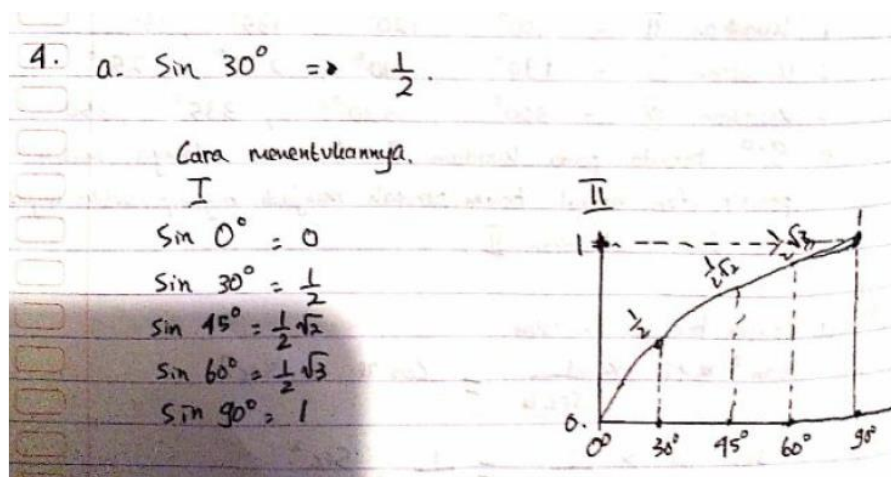 4. a. Sin 30° => 1/2.
Cara menentukannya.
I
Sin 0° = 0
Sin 30° = 1/2
Sin 45° = 1/2 √2
Sin 60° = 1/2 √3
Sin 90° = 1
II
1
1
1/2 √3
1/2 √2
1/2
0.
0° 30° 45° 60° 90°